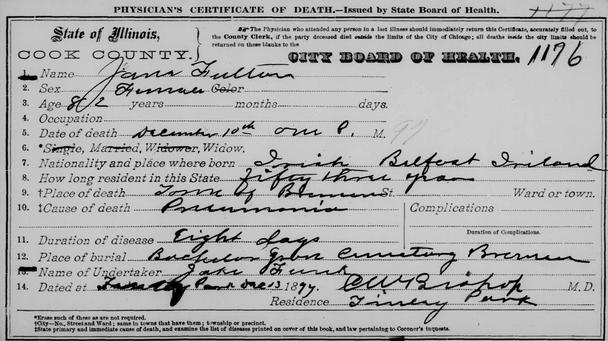 PHYSICIAN'S CERTIFICATE OF DEATH.—Issued by State Board of Health.
1177
State of Illinois,
COOK COUNTY.
The Physician who attended any person in a last illness should immediately return this Certificate, accurately filled out, to the County Clerk, if the party deceased died outside the limits of the City of Chicago; all deaths inside the city limits should be returned on these blanks to the
CITY BOARD OF HEALTH.
1176
1. Name Jane Fulton
2. Sex Female Color
3. Age 82 years months days.
4. Occupation
5. Date of death December 10th one P. M. 97
6. *Single, Married, Widower, Widow.
7. Nationality and place where born Irish Belfest Iriland
8. How long resident in this State fifty three years
9. †Place of death Town of Bremen St. Ward or town.
10. ‡Cause of death Pneumonia Complications
Duration of Complications.
11. Duration of disease Eight days
12. Place of burial Bachelor Grove Cemetery Bremen
13. Name of Undertaker Jake Funk
14. Dated at Tinley Park Dec 13 1897. CW Bishop M. D.
Residence Tinley Park
*Erase such of these as are not required.
†City—No., Street and Ward; same in towns that have them; township or precinct.
‡State primary and immediate cause of death, and examine the list of diseases printed on cover of this book, and law pertaining to Coroner's inquests.